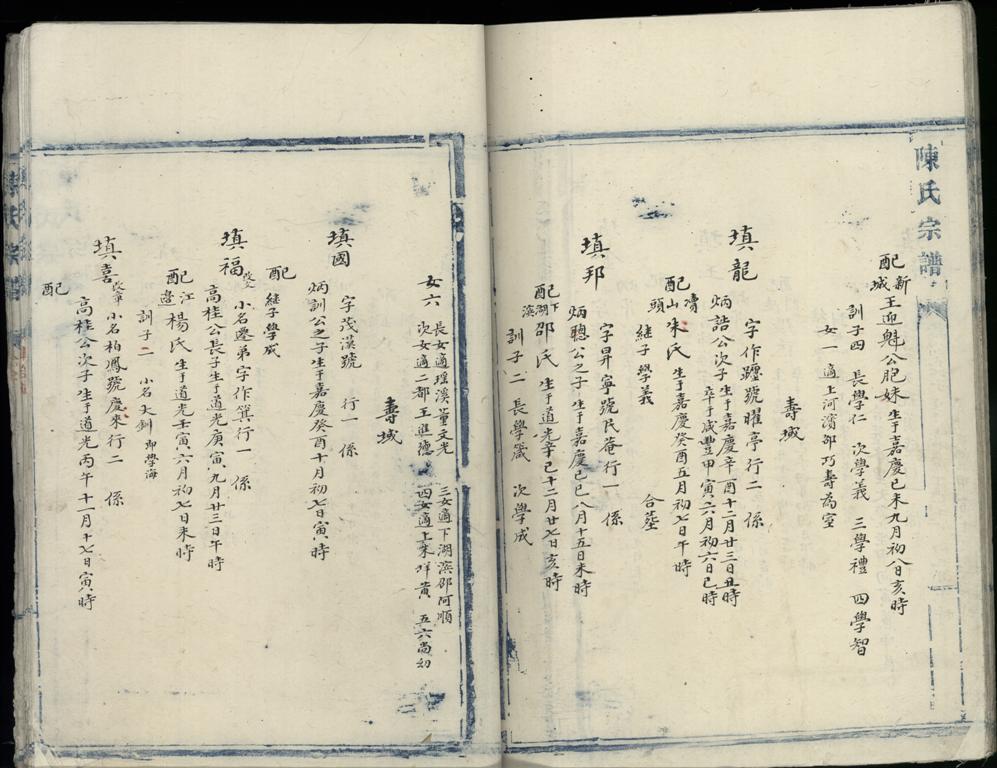 陳氏宗譜
配新城王迎魁公胞妹生于嘉慶己未九月初八日亥時
訓子四 長學仁 次學義 三學禮 四學智
女一 適上河濱邵巧壽為室
壽域
填龍 字作躔號曜亭行二 係
炳誥公次子生于嘉慶辛酉十二月廿三日丑時
卒于咸豐甲寅六月初六日巳時
配山頭朱氏 生于嘉慶癸酉五月初七日午時
継子學義 合塟
填邦 字昇寧號民菴行一 係
炳聰公之子生于嘉慶己巳八月十五日未時
配下湖濱邵氏 生于道光辛巳十二月廿七日亥時
訓子二 長學 次學成
女六 長女適瑶溪董文光 三女適下湖濱邵阿順
次女適二都王進德 四女適上黄 五六尚幼
壽域
填國 字茂漢號 行一 係
炳訓公之子生于嘉慶癸酉十月初七日寅時
配
継子學成
填福 小名遷弟字作箕行一 係
高桂公長子生于道光庚寅九月廿三日午時
配江邉楊氏 生于道光壬寅六月初七日未時
訓子二 小名大釧 即學海
填喜 改華 小名柏鳳號慶來行二 係
高桂公次子 生于道光丙午十一月十七日寅時
配
陳氏宗譜